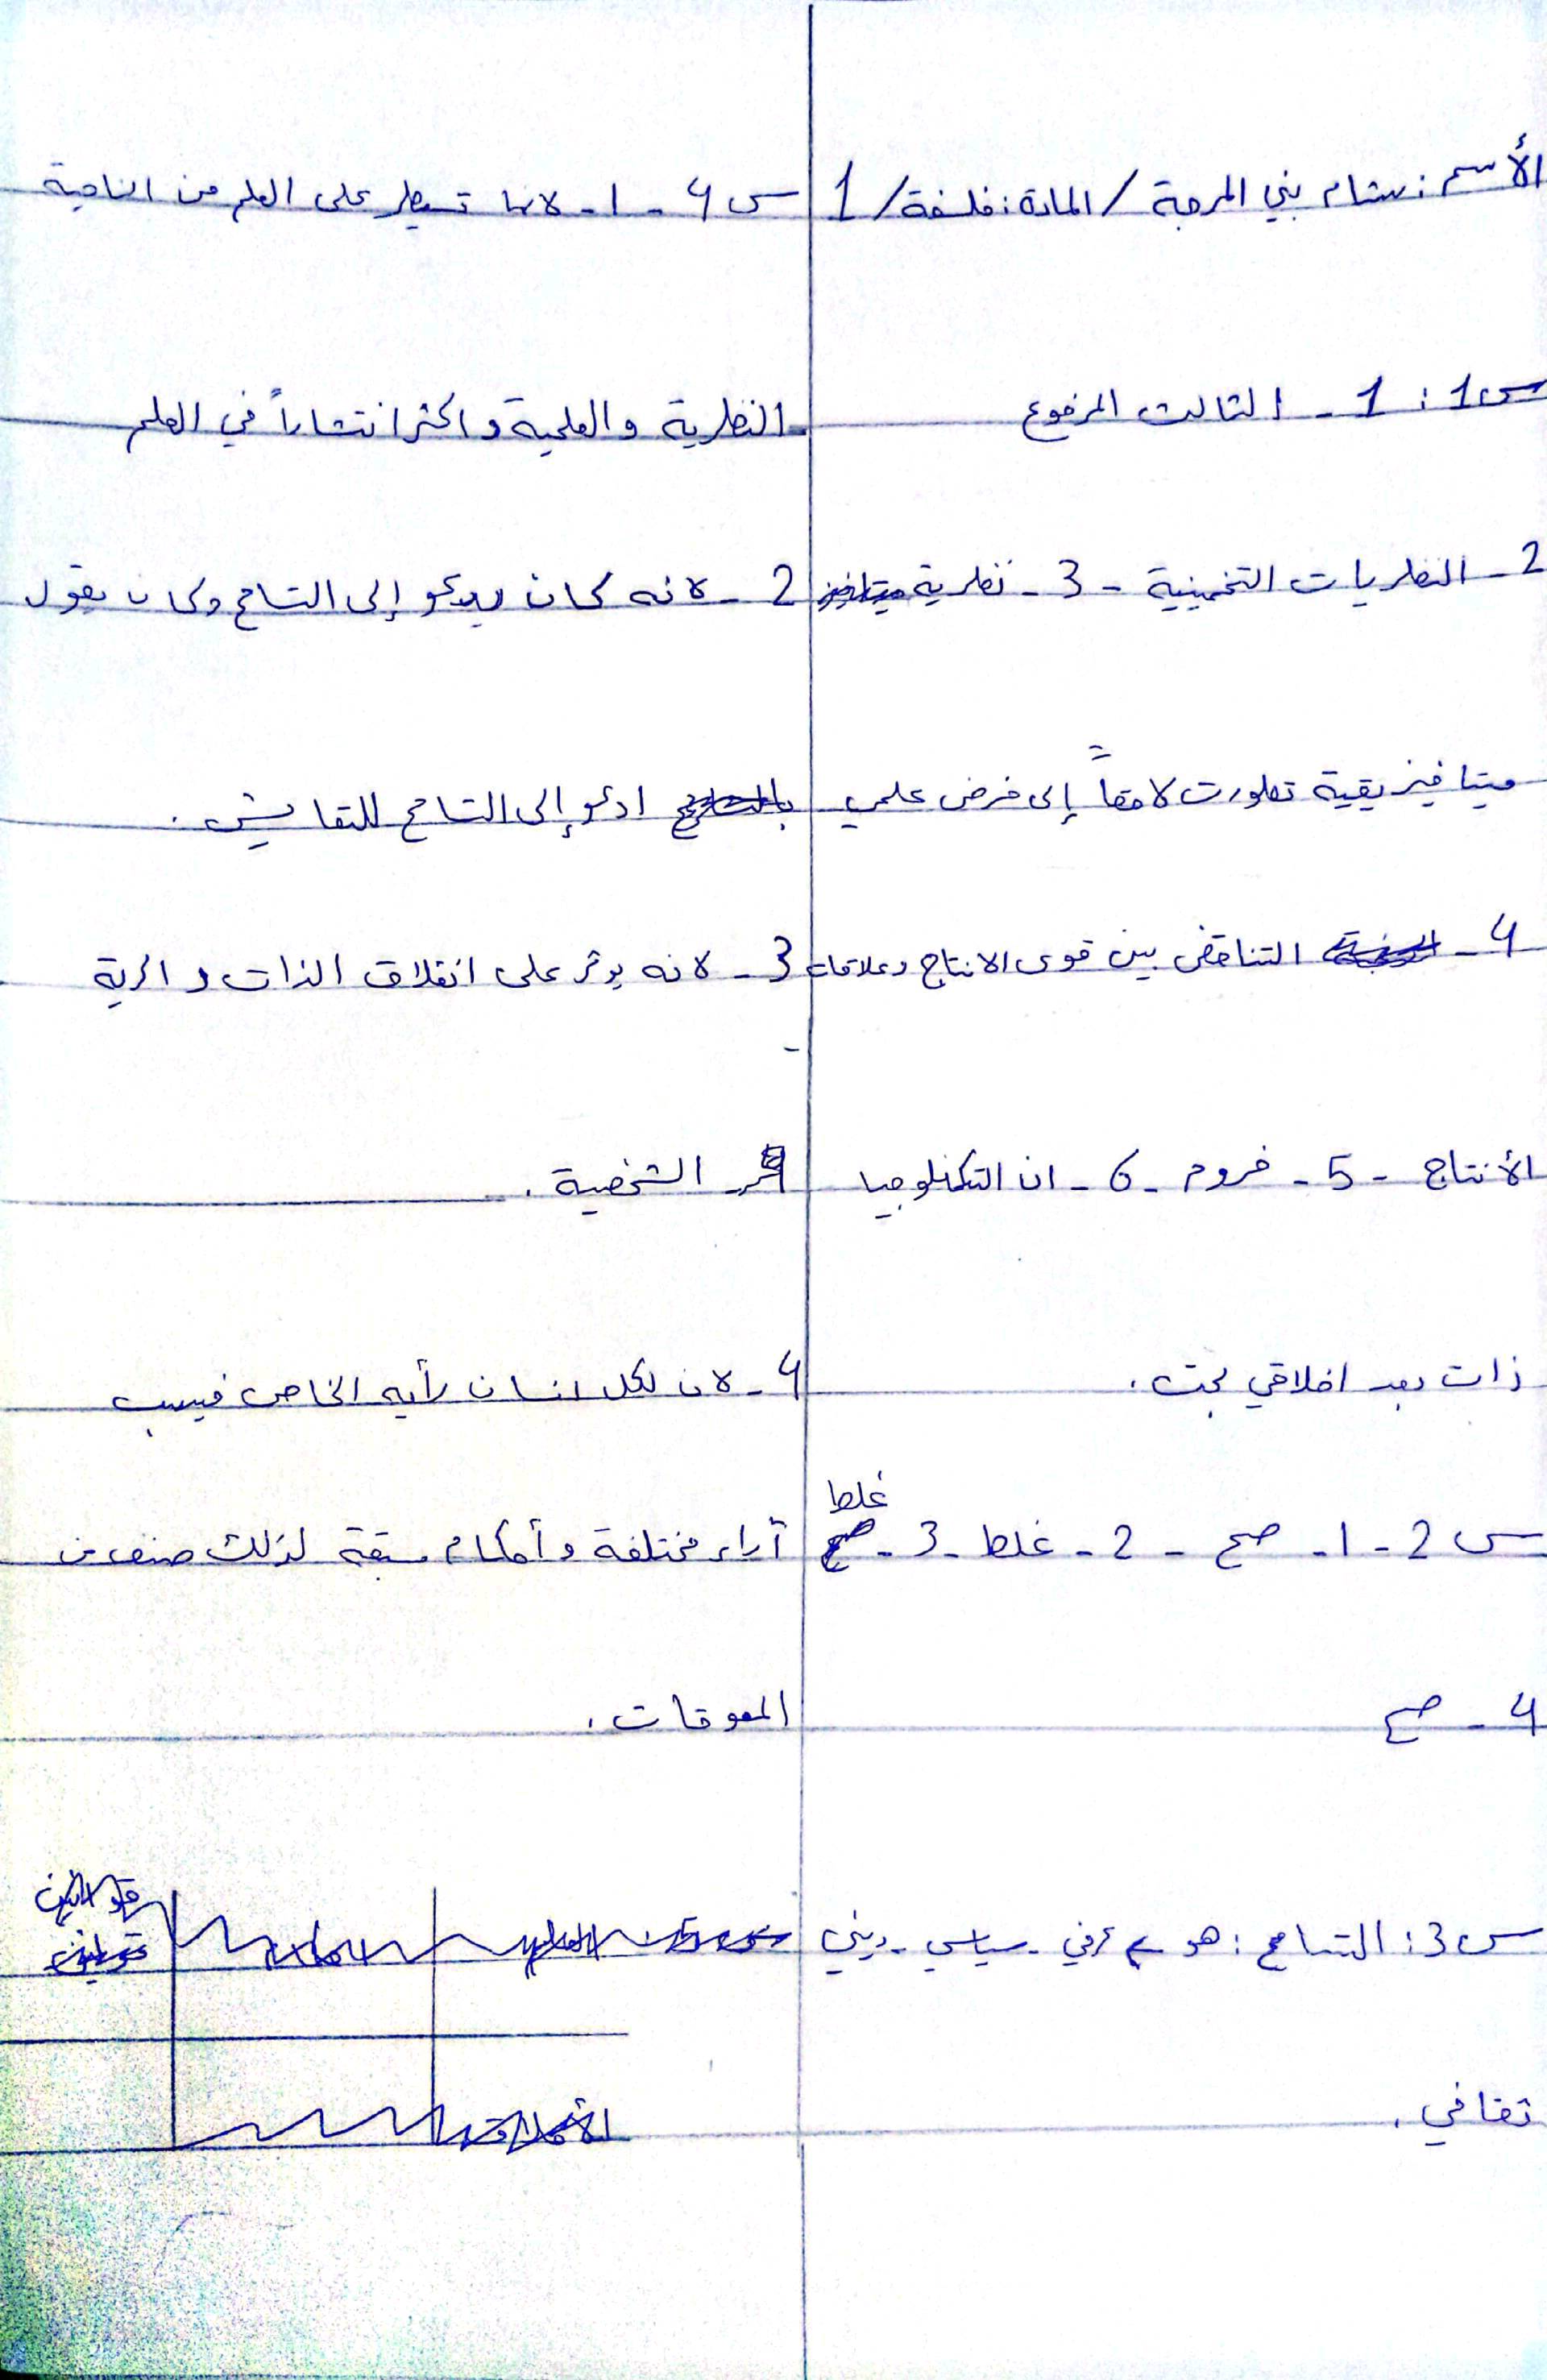 الأسم: بسام بني المرجة / المادة: فلسفة / 1
س1: 1 - الثالث المرفوع
2 - النظريات التخمينية - 3 - نظرية
ميتافيزيقية تطورت لاحقاً إلى فرض علمي
4 - التناقض بين قوى الانتاج وعلاقات
الأنتاج - 5 - فروم - 6 - ان التكنلوجيا
ذات بعد اخلاقي بحت.
س2 - 1 - صح - 2 - غلط - 3 - غلط
4 - صح
س3: التسامح: هو عرفي - سياسي - ديني
ثقافي.
س4 - 1 - لانها تسيطر على العلم من الناحية
النظرية والعلمية واكثر انتشاراً في العلم
2 - لانه كان يدعو إلى التسامح وكان يقول
ادعو إلى التسامح للتعايش.
3 - لانه يوثر على انغلاق الذات والحرية
الشخصية.
4 - لان لكل انسان رأيه الخاص فيسبب
آراء مختلفة وأحكام مسبقة لذلك صنف من
المعوقات.